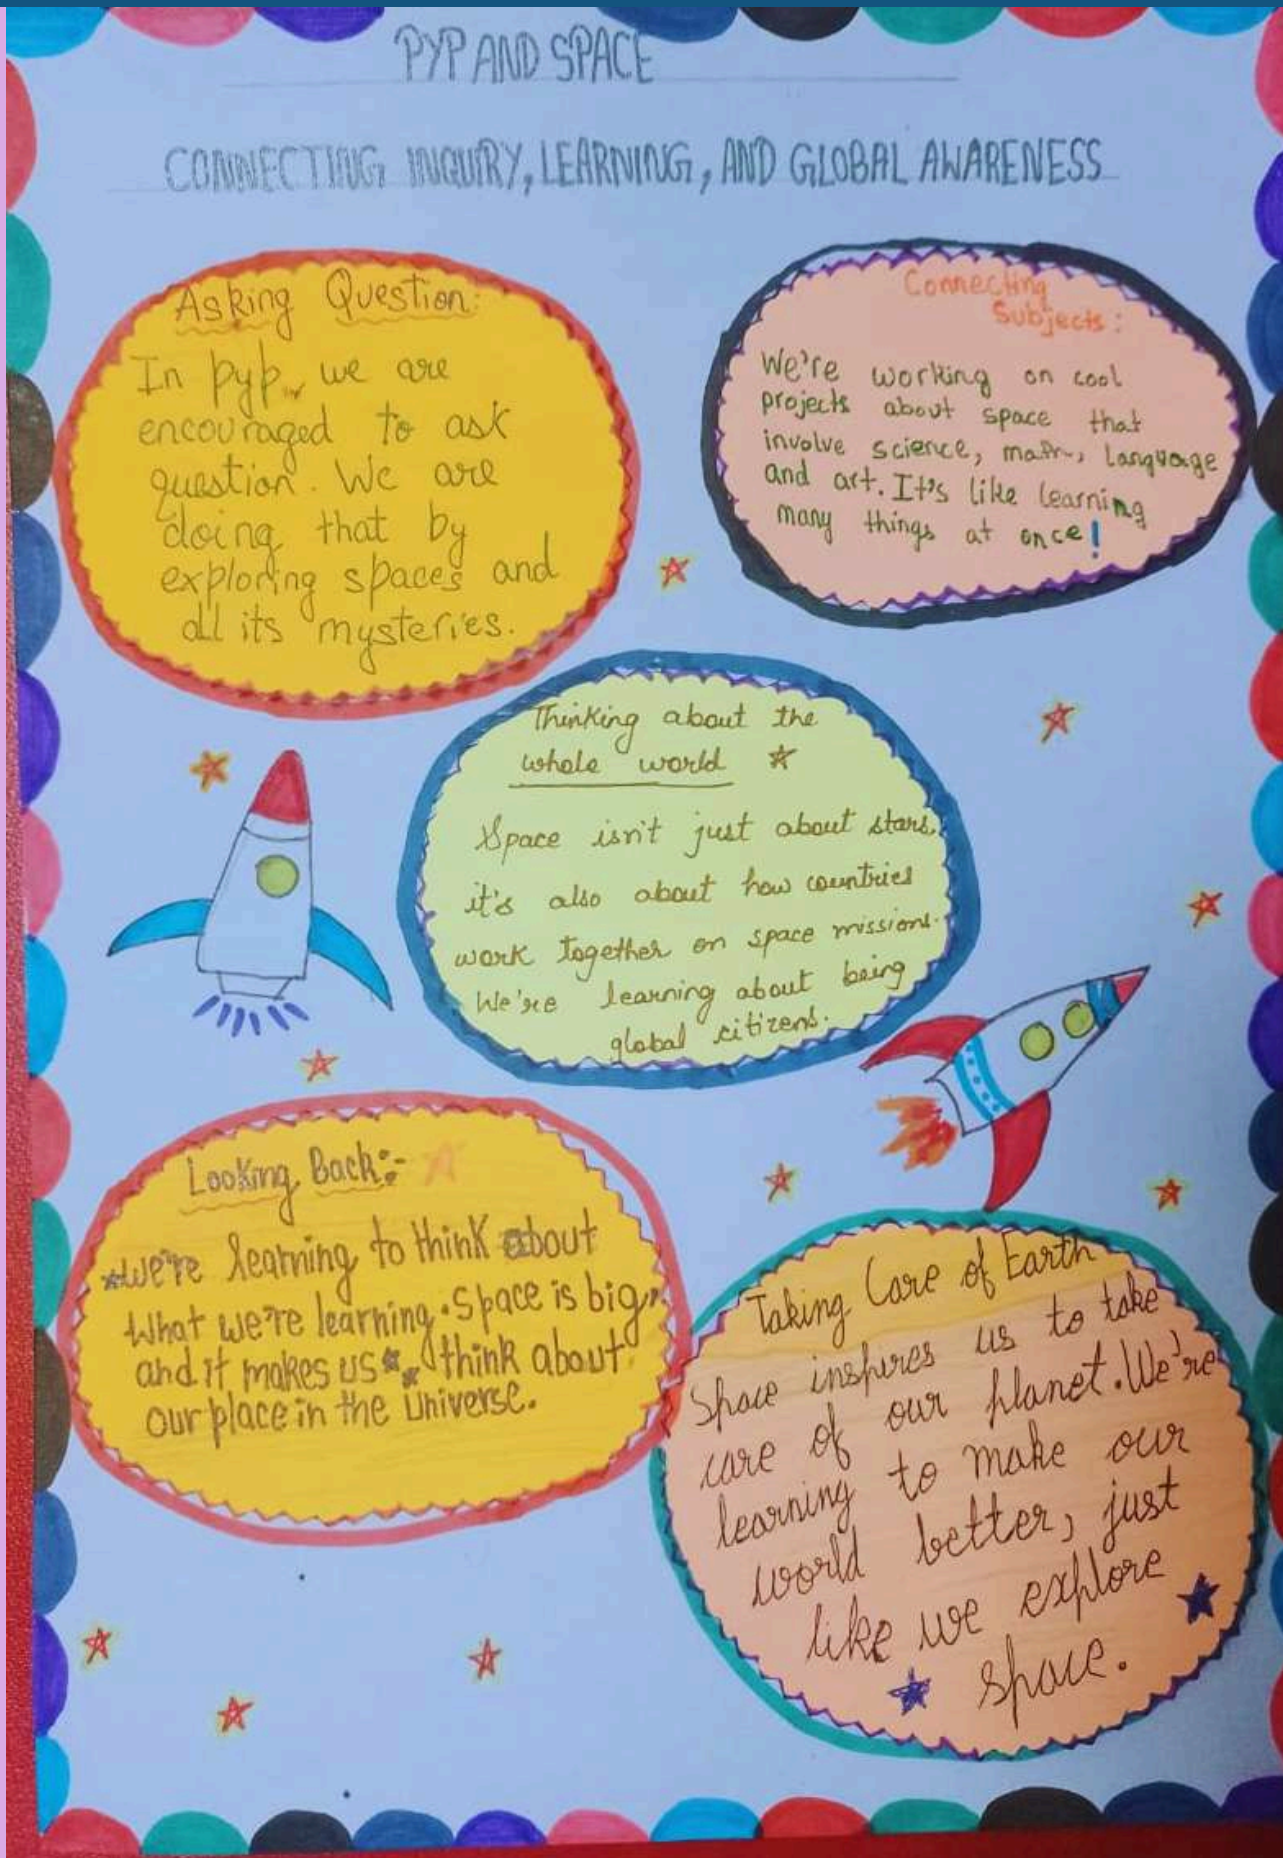 PYP AND SPACE
CONNECTING INQUIRY, LEARNING, AND GLOBAL AWARENESS
Asking Question:
In pyp, we are
encouraged to ask
question. We are
doing that by
exploring spaces and
all its mysteries.
Connecting
Subjects:
We're working on cool
projects about space that
involve science, math, language
and art. It's like learning
many things at once!
Thinking about the
whole world
Space isn't just about stars,
it's also about how countries
work together on space missions.
We're learning about being
global citizens.
Looking Back:-
We're learning to think about
What we're learning. Space is big,
and it makes us think about
our place in the Universe.
Taking Care of Earth
Space inspires us to take
care of our planet. We're
learning to make our
world better, just
like we explore
space.